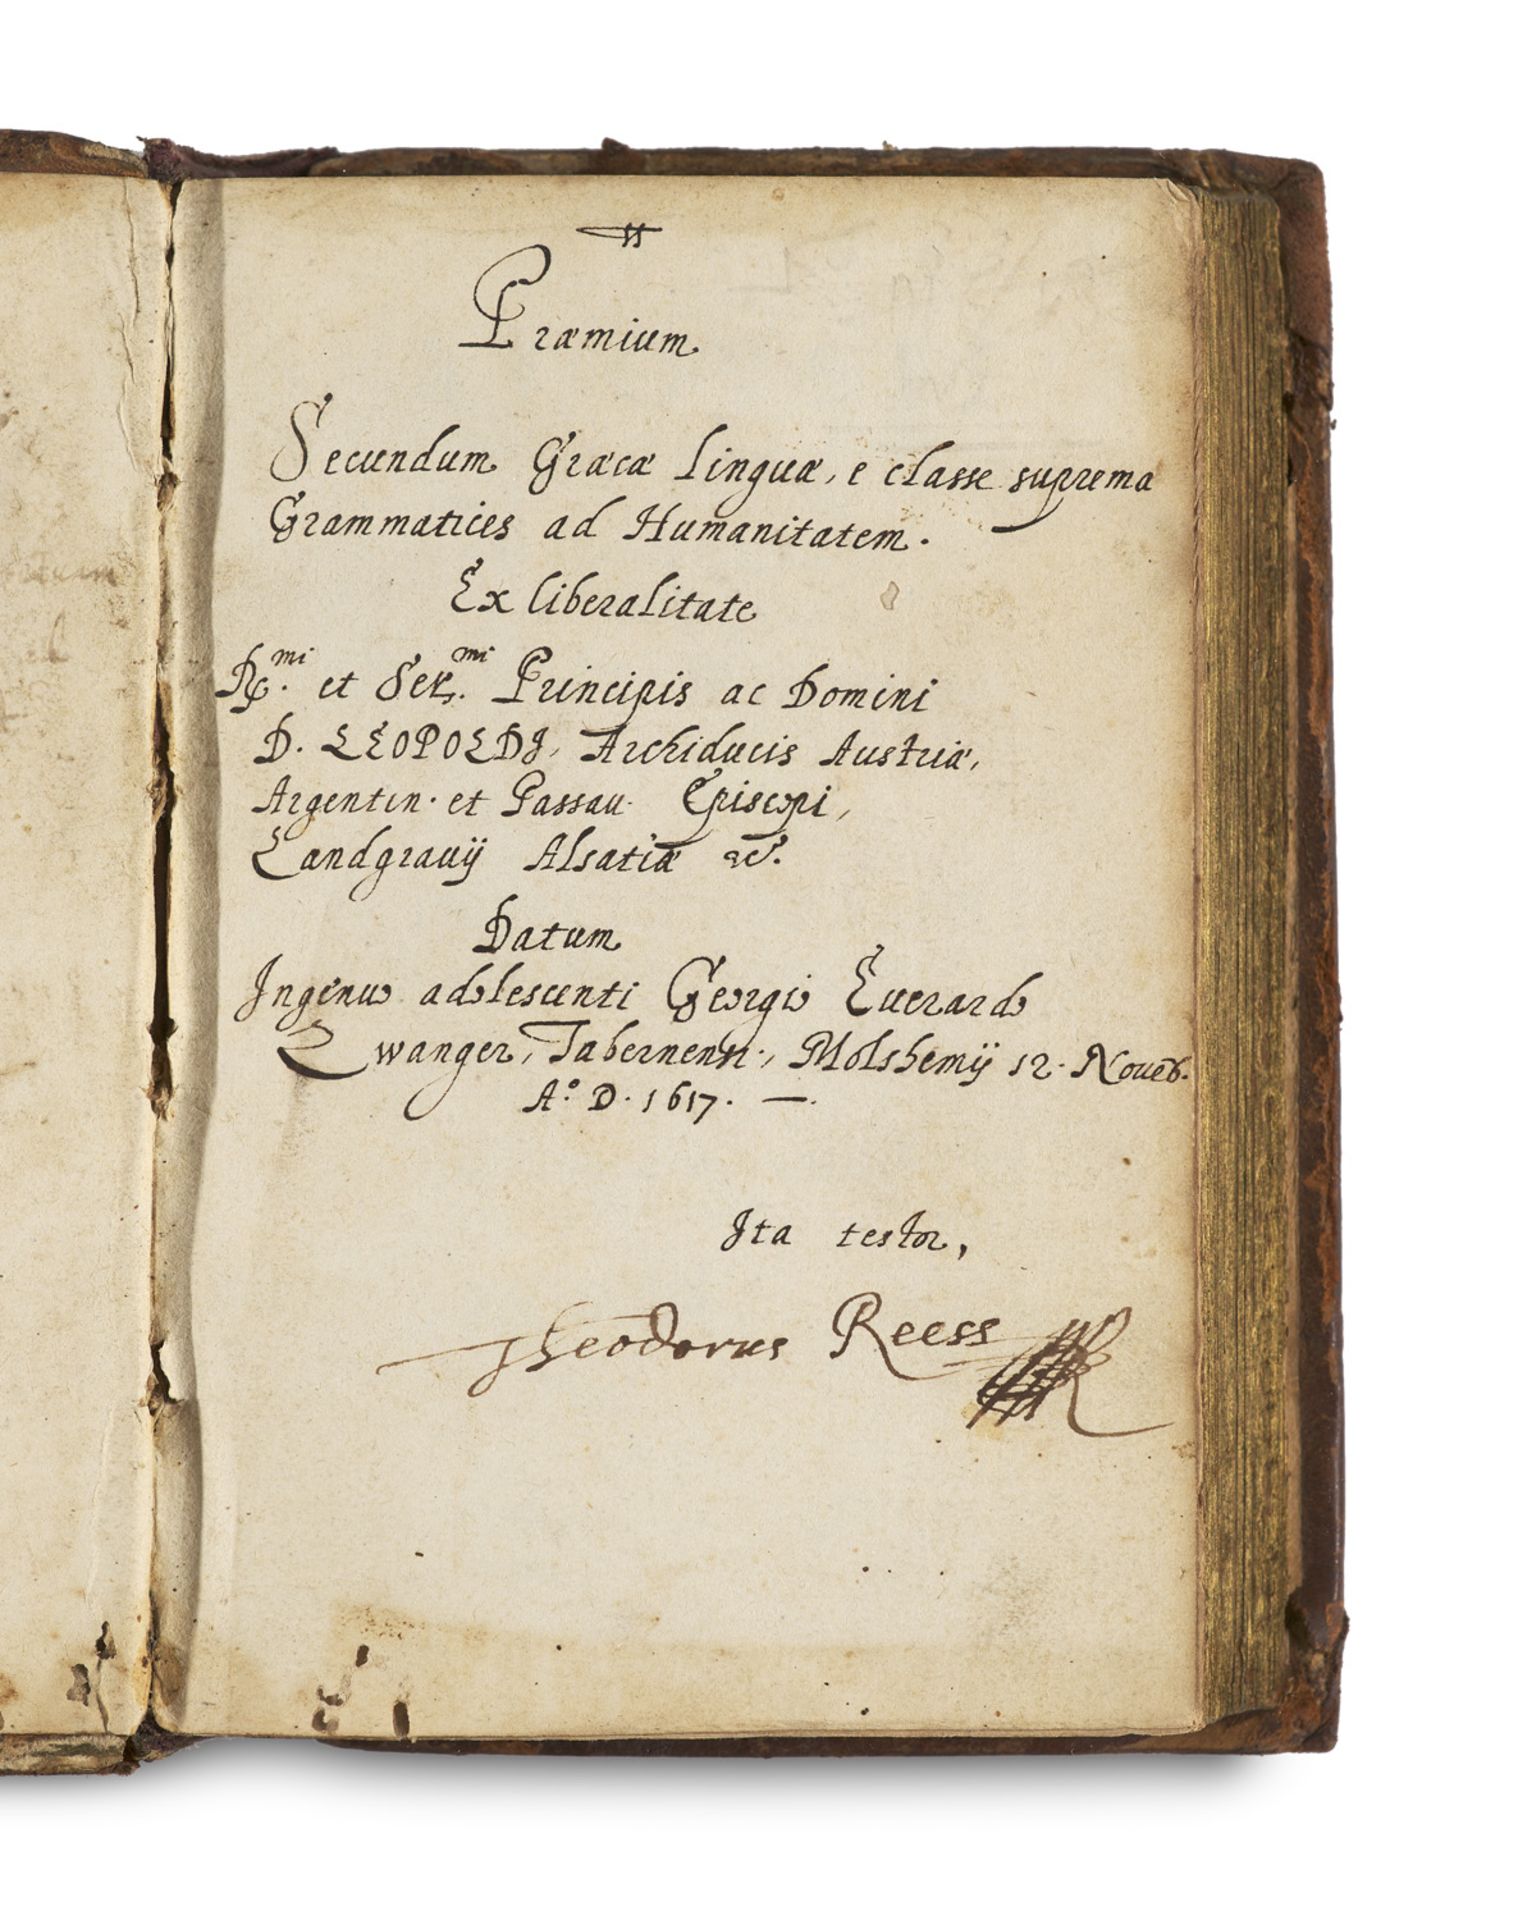 Præmium
Secundum Græcæ Linguæ, e classe suprema
Grammatices ad Humanitatem.
Ex liberalitate
R.mi et Ser.mi Principis ac Domini
D. LEOPOLDJ, Archiducis Austriæ,
Argentin. et Passau. Episcopi,
Landgrauij Alsatiæ &c.
Datum
Jngenuo adolescenti Georgio Euerardo
Zwanger, Tabernensi, Molshemij 12. Noueb.
A.o D. 1617. —.
Jta testor,
Theodorus Reess